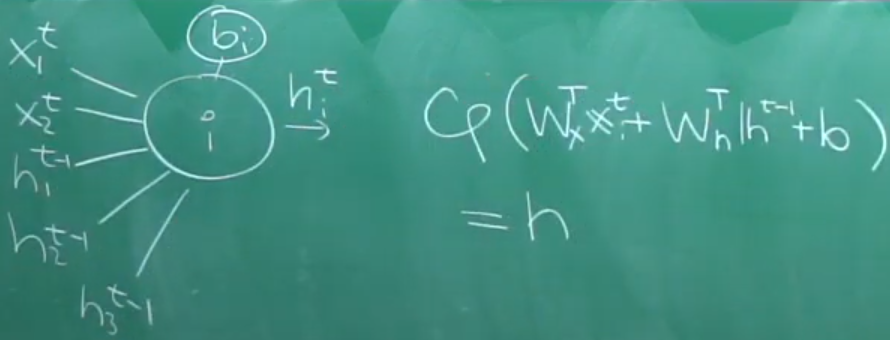 x₁ᵗ
x₂ᵗ
h₁ᵗ⁻¹
h₂ᵗ⁻¹
h₃ᵗ⁻¹
bᵢ
i
hᵢᵗ →
φ(Wₓᵀxᵢᵗ + Wₕᵀhᵗ⁻¹ + b)
= h